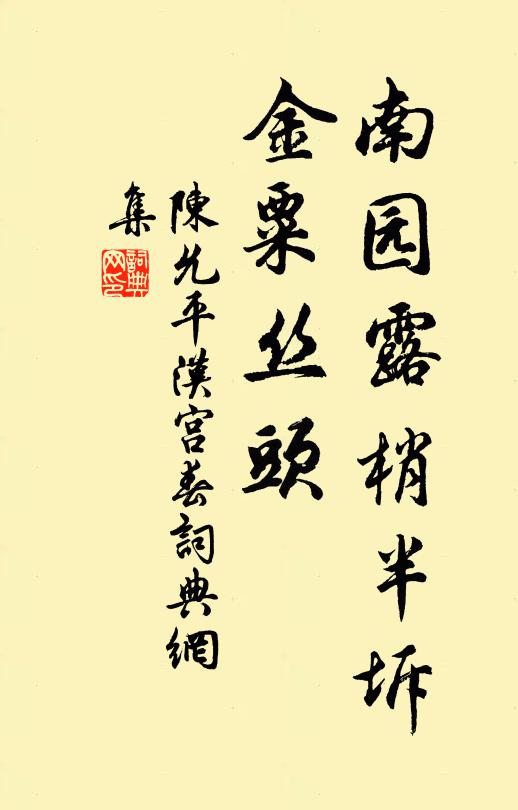 南园露梢半坼
金粟丝頭
陳允平漢宫春詞典網
集
詞典
网印